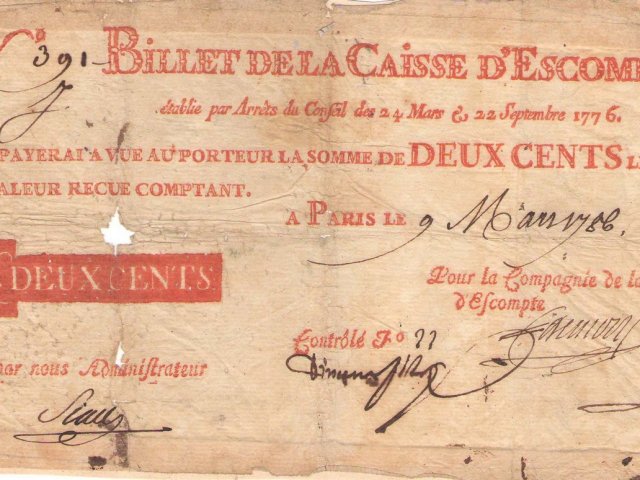 391
BILLET DE LA CAISSE D'ESCOM
établie par Arrêts du Conseil des 24 Mars & 22 Septembre 1776.
PAYERAI A VUE AU PORTEUR LA SOMME DE DEUX CENTS L
ALEUR RECUE COMPTANT.
A PARIS LE 9 Mars 1786.
DEUX CENTS
Pour la Compagnie de la
d'Escompte
Contrôlé Fo 33
par nous Administrateur